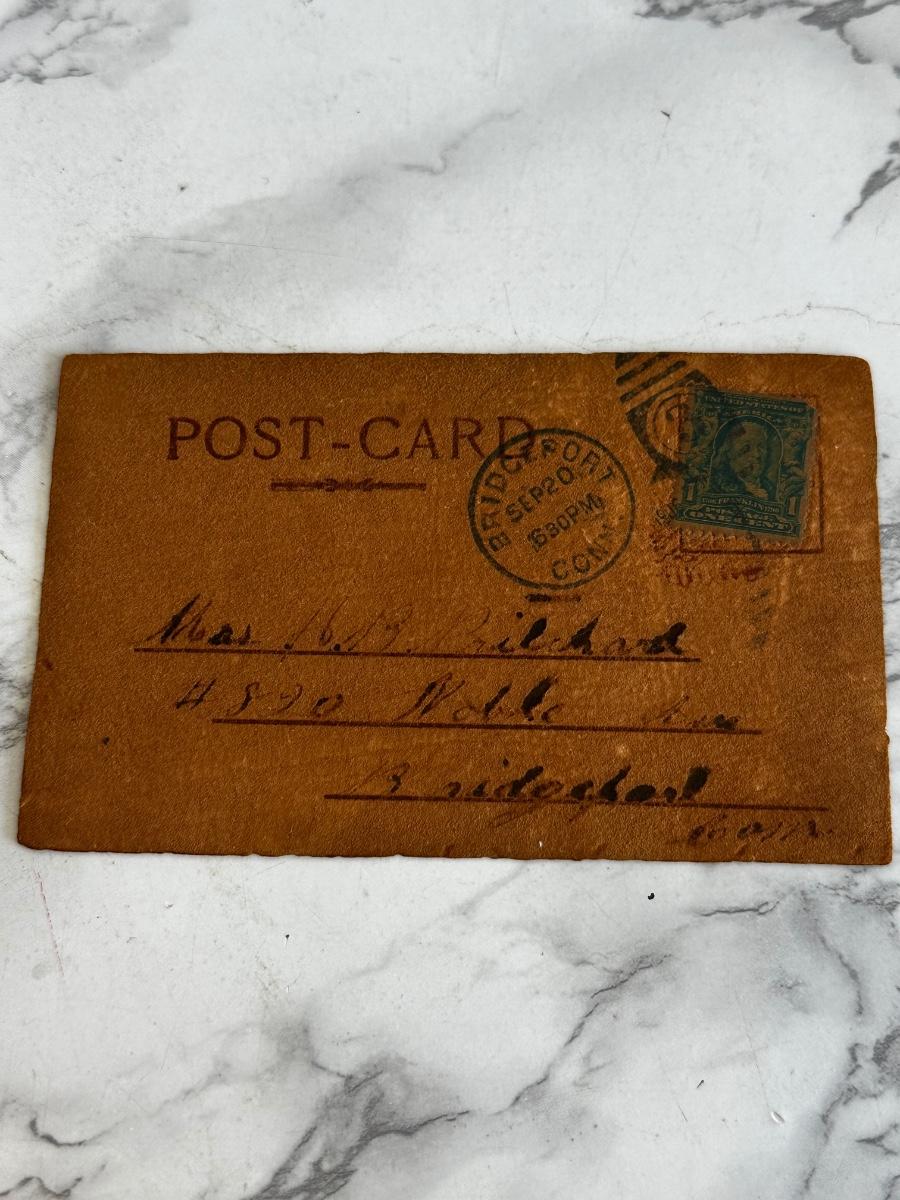 POST-CARD
BRIDGEPORT
SEP 20
630PM
CONN.
UNITED STATES OF
AMERICA
1 FRANKLIN 1
POSTAGE
ONE CENT
Mrs. H. B. Pritchard
Noble Ave
Bridgeport
Conn.